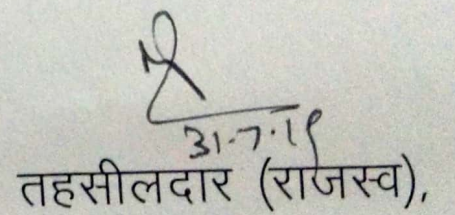 31.7.19
तहसीलदार (राजस्व),